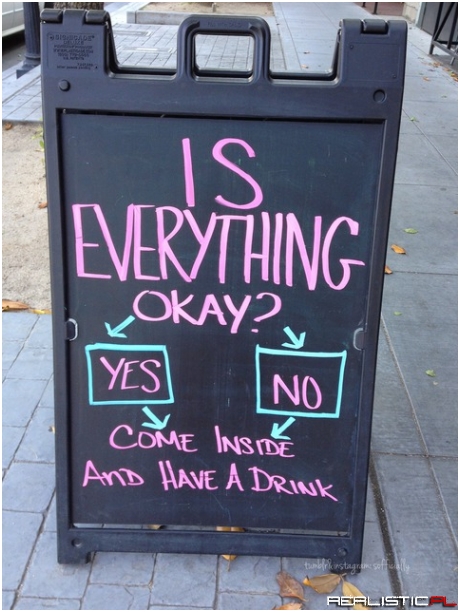 IS
EVERYTHING
OKAY?
YES NO
COME INSIDE
AND HAVE A DRINK
REALISTIC.PL